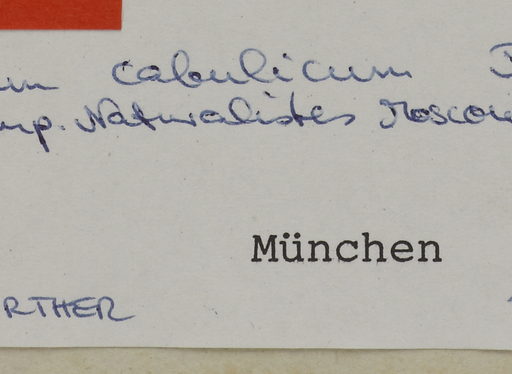 um cabulicum
mp. Naturalistes Moscou
München
RTHER